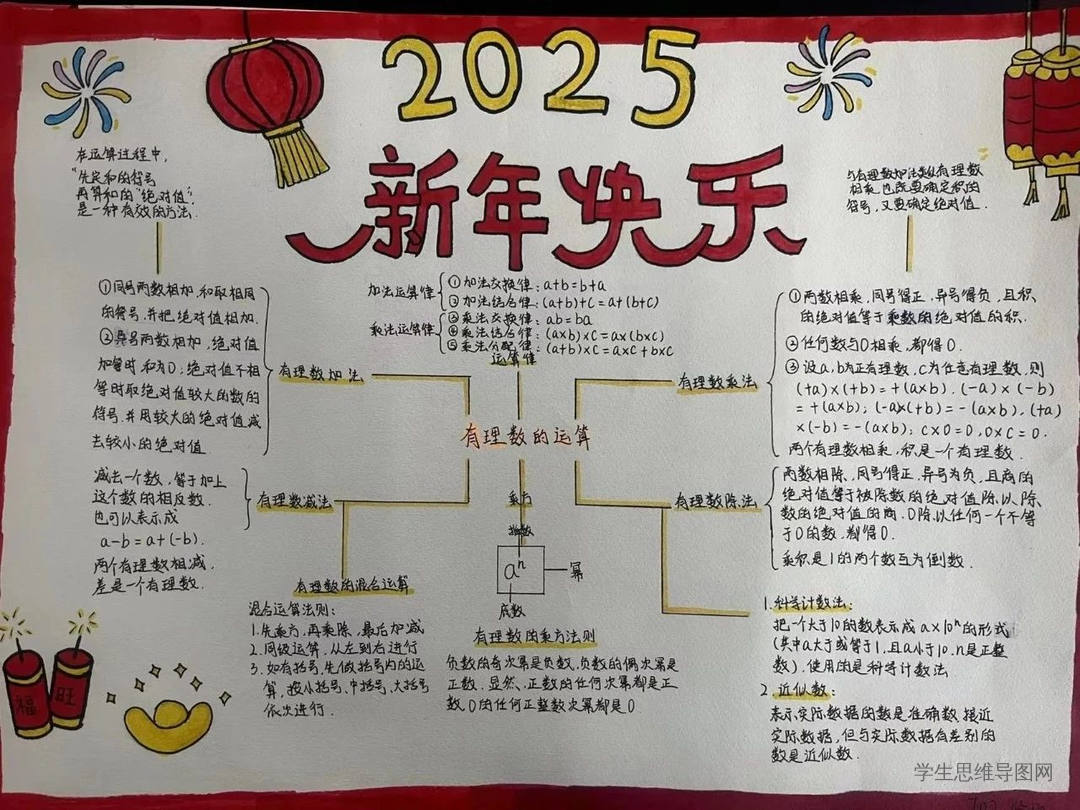 2025
新年快乐
在运算过程中,
"先定和的符号
再算和的"绝对值",
是一种有效的方法.
与有理数加法类似有理数
相乘,也既要确定积的
符号,又要确定绝对值.
加法运算律
①加法交换律:a+b=b+a
②加法结合律:(a+b)+c=a+(b+c)
乘法运算律
③乘法交换律:ab=ba
④乘法结合律:(a×b)×c=a×(b×c)
⑤乘法分配律:(a+b)×c=a×c+b×c
运算律
①同号两数相加,和取相同
的符号.并把绝对值相加.
②异号两数相加,绝对值
加等时,和为0;绝对值不相
等时取绝对值较大的数的
符号.并用较大的绝对值减
去较小的绝对值
有理数加法
减去一个数,等于加上
这个数的相反数.
也可以表示成
a-b=a+(-b).
两个有理数相减.
差是一个有理数.
有理数减法
有理数的运算
有理数乘法
①两数相乘,同号得正,异号得负,且积
的绝对值等于乘数的绝对值的积.
②任何数与0相乘,都得0.
③设a,b为正有理数,c为任意有理数,则
(+a)×(+b)=+(a×b),(-a)×(-b)
=+(a×b);(-a)×(+b)=-(a×b),(+a)
×(-b)=-(a×b);c×0=0,0×c=0.
两个有理数相乘,积是一个有理数.
有理数除法
两数相除,同号得正,异号为负,且商的
绝对值等于被除数的绝对值除以除
数的绝对值的商.0除以任何一个不等
于0的数,都得0.
乘积是1的两个数互为倒数.
有理数的混合运算
混合运算法则:
1.先乘方,再乘除,最后加减
2.同级运算,从左到右进行
3.如有括号,先做括号内的运
算,按小括号、中括号、大括号
依次进行.
乘方
指数
aⁿ
幂
底数
有理数的乘方法则
负数的奇次幂是负数,负数的偶次幂是
正数.显然、正数的任何次幂都是正
数,0的任何正整数次幂都是0
1.科学计数法:
把一个大于10的数表示成a×10ⁿ的形式
(其中a大于或等于1,且a小于10.n是正整
数).使用的是科学计数法
2.近似数:
表示实际数据的数是准确数,接近
实际数据,但与实际数据有差别的
数是近似数.
福
旺
学生思维导图网